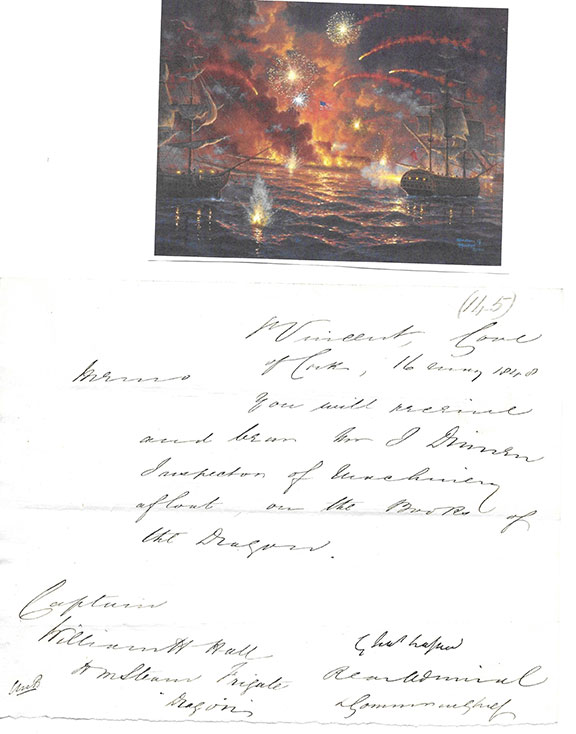 (145)
St Vincent, Cove
of Cork, 16 May 1848
Memo
You will receive
and bear Mr J Dinnen
Inspector of Machinery
afloat on the Books of
the Dragon.
Captain
William H Hall
HM Steam Frigate
Dragon
Rear Admiral
& Comm in Chief